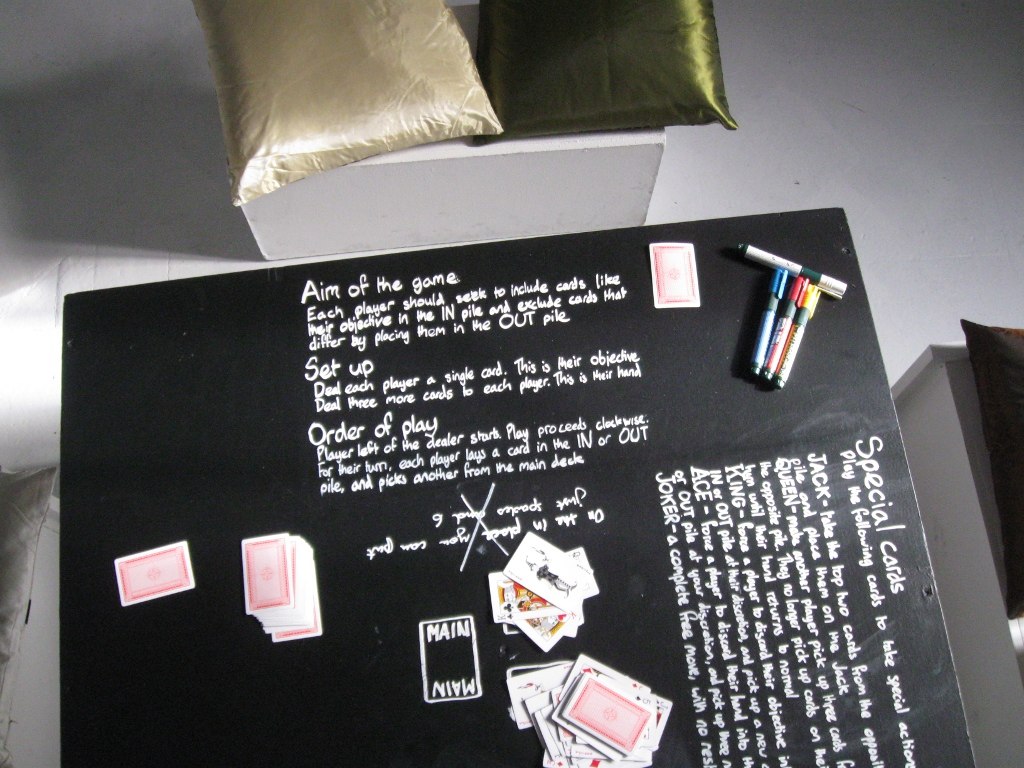 Aim of the game
Each player should seek to include cards like
their objective in the IN pile and exclude cards that
differ by placing them in the OUT pile
Set up
Deal each player a single card. This is their objective
Deal three more cards to each player. This is their hand
Order of play
Player left of the dealer starts. Play proceeds, clockwise.
For their turn, each player lays a card in the IN or OUT
pile, and picks another from the main deck
On the
you can put
MAIN
MAIN
Special cards
Play the following cards to take special action
JACK - take the top two cards from the
pile and place them on the Jack
QUEEN - make another player pick up three cards
the opposite pile. They no longer pick up cards on
turn until their hand returns to normal
KING - force a player to discard their objective in
IN or OUT pile at their discretion, and pick up a new
ACE - force a player to discard their hand into
or OUT pile at your discretion, and pick up three
JOKER - a complete free move, with no